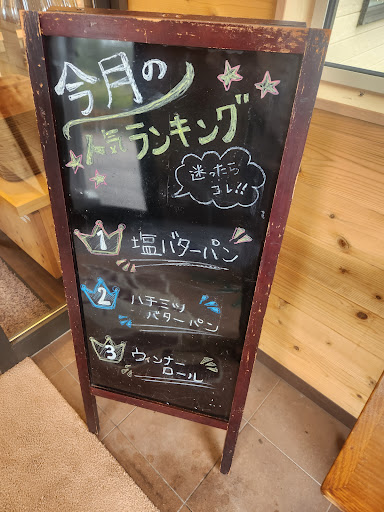 今月の
人気ランキング
迷ったら
コレ!!
1 塩バターパン
2 ハチミツ
バターパン
3 ウィンナー
ロール